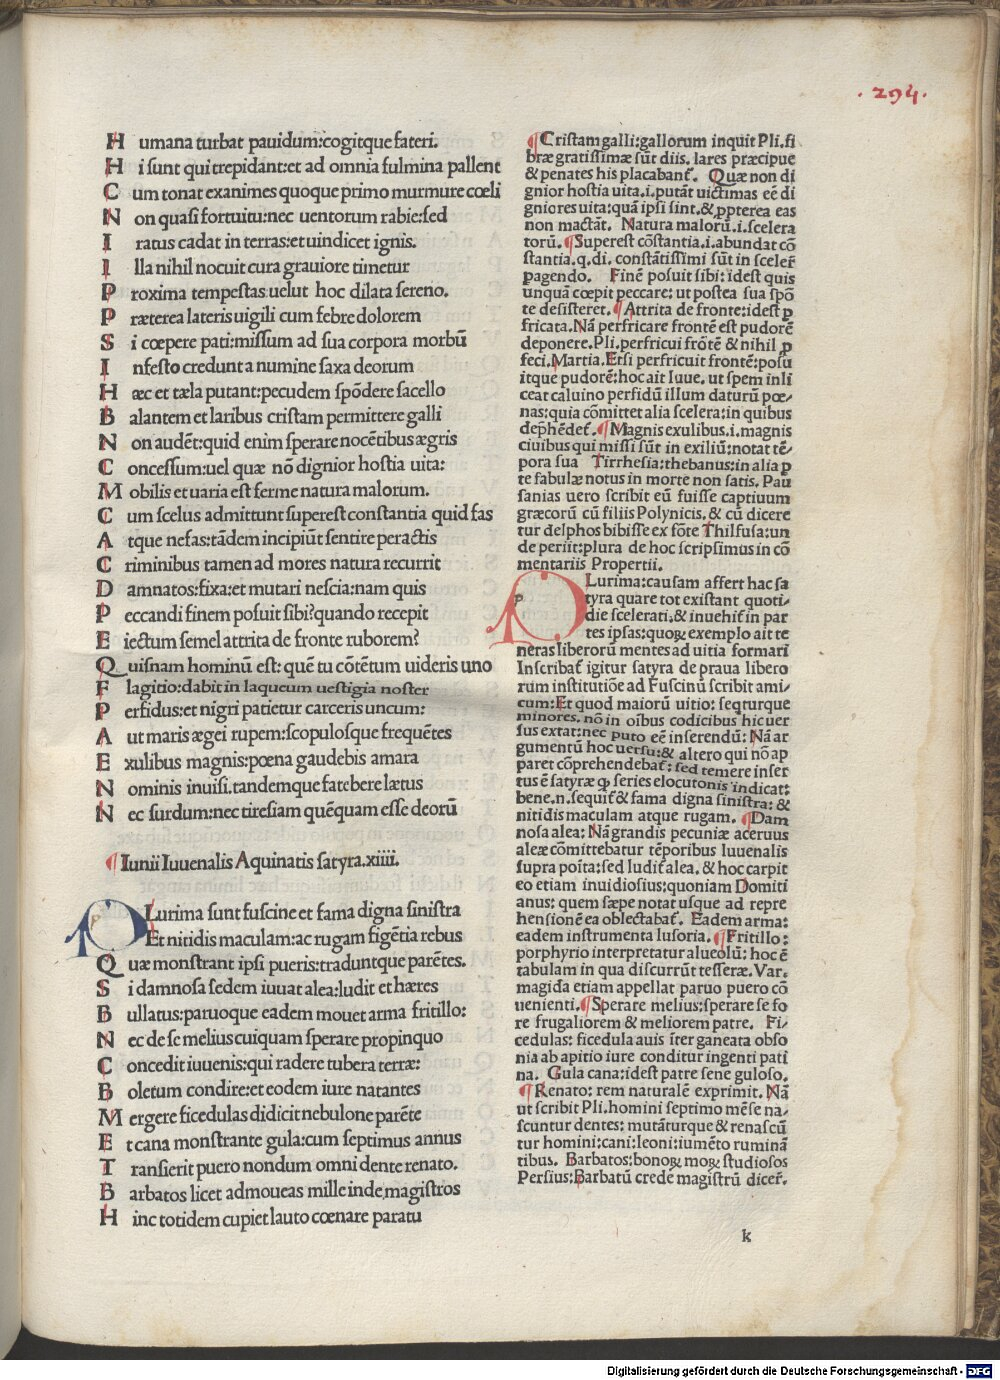 .294.
H umana turbat pauidum:cogitque fateri.
H i sunt qui trepidant:et ad omnia fulmina pallent
C um tonat exanimes quoque primo murmure cœli
N on quasi fortuitu:nec uentorum rabie:sed
I ratus cadat in terras:et uindicet ignis.
I lla nihil nocuit cura grauiore timetur
P roxima tempestas uelut hoc dilata sereno.
P ræterea lateris uigili cum febre dolorem
S i cœpere pati:missum ad sua corpora morbū
I nfesto credunt a numine saxa deorum
H æc et tæla putant:pecudem spōdere sacello
B alantem et laribus cristam permittere galli
N on audēt:quid enim sperare nocētibus ægris
C oncessum:uel quæ nō dignior hostia uita:
M obilis et uaria est ferme natura malorum.
C um scelus admittunt superest constantia quid fas
A tque nefas:tādem incipiūt sentire peractis
C riminibus tamen ad mores natura recurrit
D amnatos:fixa:et mutari nescia:nam quis
P eccandi finem posuit sibi?quando recepit
E iectum semel attrita de fronte ruborem?
Q uisnam hominū est: quē tu cōtētum uideris uno
F lagitio:dabit in laqueum uestigia noster
P erfidus:et nigri patietur carceris uncum:
A ut maris ægei rupem:scopulosque frequētes
E xulibus magnis:pœna gaudebis amara
N ominis inuisi.tandemque fatebere lætus
N ec surdum:nec tiresiam quēquam esse deorū
¶Iunii Iuuenalis Aquinatis satyra.xiiii.
PLurima sunt fuscine et fama digna sinistra
Et nitidis maculam:ac rugam figētia rebus
Q uæ monstrant ipsi pueris:traduntque parētes.
S i damnosa sedem iuuat alea:ludit et hæres
B ullatus:paruoque eadem mouet arma fritillo:
N ec de se melius cuiquam sperare propinquo
C oncedit iuuenis:qui radere tubera terræ:
B oletum condire:et eodem iure natantes
M ergere ficedulas didicit nebulone parēte
E t cana monstrante gula:cum septimus annus
T ransierit puero nondum omni dente renato.
B arbatos licet admoueas mille inde magistros
H inc totidem cupiet lauto cœnare paratu
¶Cristam galli:gallorum inquit Pli.fi
bræ gratissimæ sūt diis. lares præcipue
& penates his placabant̄. Quæ non di
gnior hostia uita.i.putāt uictimas eē di
gniores uita:quā ipsi sint.&ꝓpterea eas
non mactāt. Natura malorū.i.scelera
torū.¶Superest cōstantia.i.abundat cō
stantia.q.di. constātissimi sūt in sceleꝝ
pagendo. Finē posuit sibi: idest quis
unquā cœpit peccare: ut postea sua spō
te desisteret.¶Attrita de fronte:idest ꝑ
fricata.Nā perfricare frontē est pudorē
deponere.Pli.perfricui frōtē & nihil ꝓ
feci.Martia.Etsi perfricuit frontē:posu
itque pudorē:hoc ait Iuue. ut spem inli
ceat caluino perfidū illum daturū pœ-
nas:quia cōmittet alia scelera:in quibus
dep̄hēdet̄.¶Magnis exulibus.i.magnis
ciuibus qui missi sūt in exiliū:notat tē-
pora sua Tirrhesia:thebanus:in alia ꝑ
te fabulæ notus in morte non satis. Pau
sanias uero scribit eū fuisse captiuum
græcorū cū filiis Polynicis.& cū dicere
tur delphos bibisse ex fōte Thilfusa:un
de periit:plura de hoc scripsimus in cō
mentariis Propertii.
PLurima:causam affert hac sa
tyra quare tot existant quoti-
die scelerati:& inuehit̄ in par
tes ipsas:quoꝝ exemplo ait te
neras liberorū mentes ad uitia formari
Inscribat̄ igitur satyra de praua libero
rum institutiōe ad Fuscinū scribit ami-
cum:Et quod maiorū uitio: seq̄turque
minores. nō in oībus codicibus hic uer
sus extat:nec puto eē inserendū: Nā ar
gumentū hoc uersu:& altero qui nō ap
paret cōprehendebat̄: sed temere inser
tus ē satyræ ꝙ series elocutonis indicat:
bene.n.sequit̄ & fama digna sinistra: &
nitidis maculam atque rugam. ¶Dam
nosa alea: Nā grandis pecuniæ aceruus
aleæ cōmittebatur tēporibus Iuuenalis
supra poīta:sed ludit̄ alea. & hoc carpit
eo etiam inuidiosius:quoniam Domiti
anus: quem sæpe notat usque ad repre
hensionē ea oblectabat̄. Eadem arma:
eadem instrumenta lusoria.¶Fritillo:
porphyrio interpretatur alueolū: hoc ē
tabulam in qua discurrūt tesseræ. Var.
magida etiam appellat paruo puero cō
uenienti.¶Sperare melius:sperare se fo
re frugaliorem & meliorem patre. Fi-
cedulas: ficedula auis īter ganeata obso
nia ab apitio iure conditur ingenti pati
na. Gula cana:idest patre sene guloso.
¶Renato: rem naturalē exprimit. Nā
ut scribit Pli.homini septimo mēse na-
scuntur dentes: mutāturque & renascū
tur homini:cani:leoni:iumēto ruminā
tibus. Barbatos:bonoꝝ moꝝ studiosos
Persius:Barbatū crede magistrū diceꝝ.
k
Digitalisierung gefördert durch die Deutsche Forschungsgemeinschaft - DFG